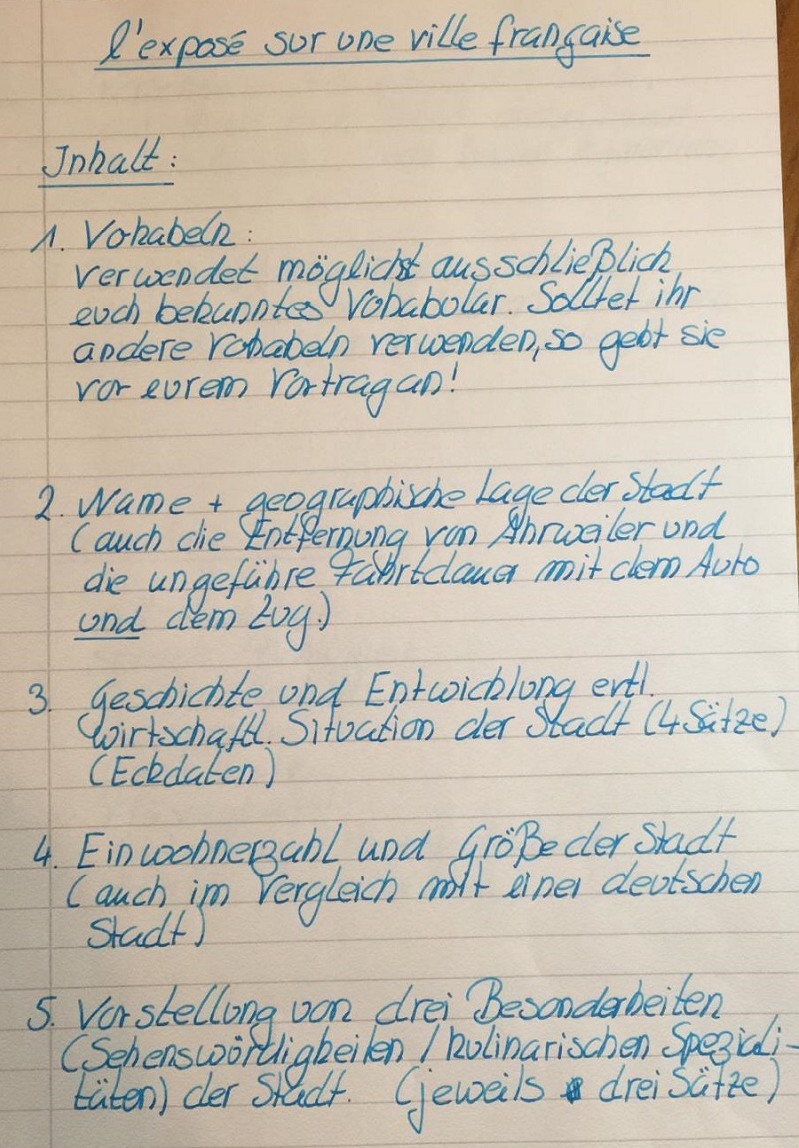 l'exposé sur une ville française
Inhalt:
1. Vokabeln:
verwendet möglichst ausschließlich
euch bekanntes Vokabolar. Solltet ihr
andere Vokabeln verwenden, so gebt sie
vor eurem Vortrag an!
2. Name + geographische Lage der Stadt
(auch die Entfernung von Ahrweiler und
die ungefähre Fahrtdauer mit dem Auto
und dem Zug.)
3. Geschichte und Entwicklung evtl.
wirtschaftl. Situation der Stadt (4 Sätze)
(Eckdaten)
4. Einwohnerzahl und Größe der Stadt
(auch im Vergleich mit einer deutschen
Stadt)
5. Vorstellung von drei Besonderheiten
(Sehenswürdigkeiten / kulinarischen Speziali-
täten) der Stadt. (jeweils drei Sätze)